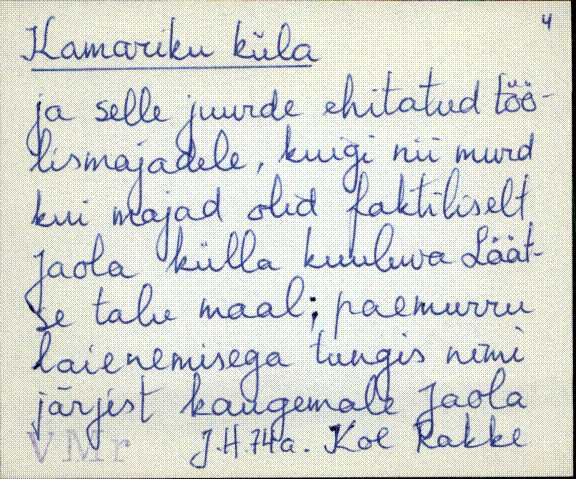 4
Kamariku küla
ja selle juurde ehitatud töö-
lismajadele, kuigi nii murd
kui majad olid faktiliselt
Jaola külla kuuluva Läät-
se talu maal; paemurru
laienemisega tungis nimi
järjest kaugemale Jaola
VMr J.H. 74a. Koe Rakke